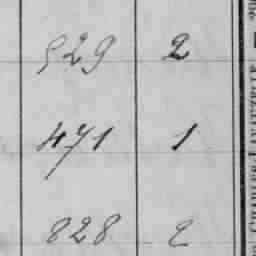 529 2
471 1
828 2